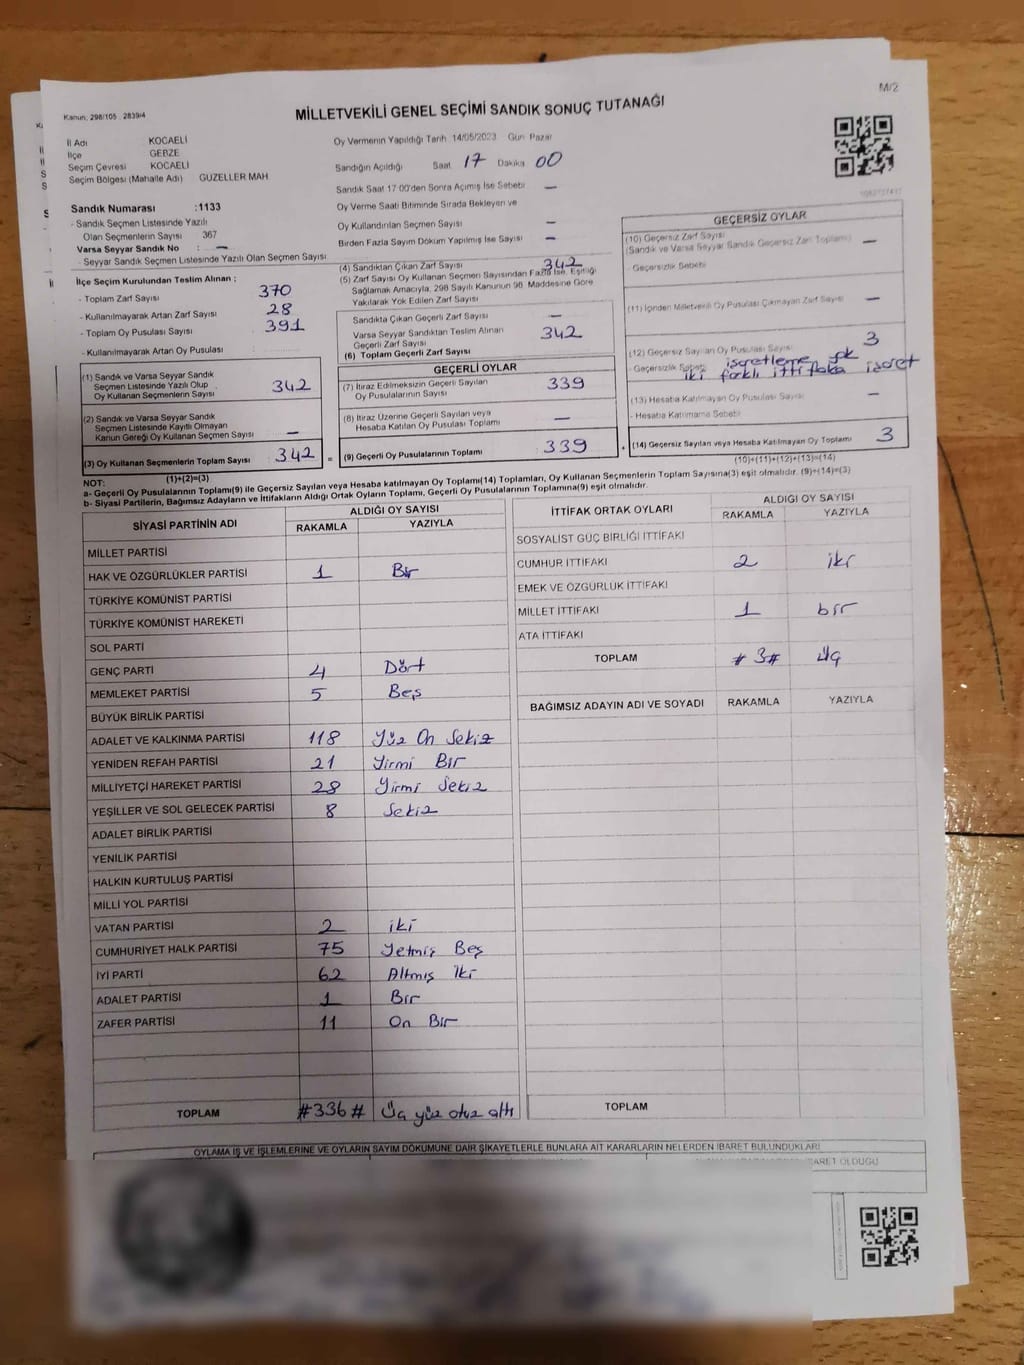 M/2
Kanun, 298/105 2839/4
MİLLETVEKİLİ GENEL SEÇİMİ SANDIK SONUÇ TUTANAĞI
İl Adı KOCAELİ
İlçe GEBZE
Seçim Çevresi KOCAELİ
Seçim Bölgesi (Mahalle Adı) GÜZELLER MAH
Oy Vermenin Yapıldığı Tarih 14/05/2023 Gün Pazar
Sandığın Açıldığı Saat 17 Dakika 00
Sandık Saat 17:00'den Sonra Açılmış İse Sebebi –
Oy Verme Saati Bitiminde Sırada Bekleyen ve
Oy Kullandırılan Seçmen Sayısı –
Birden Fazla Sayım Döküm Yapılmış İse Sayısı –
Sandık Numarası :1133
- Sandık Seçmen Listesinde Yazılı
Olan Seçmenlerin Sayısı 367
Varsa Seyyar Sandık No : –
- Seyyar Sandık Seçmen Listesinde Yazılı Olan Seçmen Sayısı
İlçe Seçim Kurulundan Teslim Alınan ;
- Toplam Zarf Sayısı 370
- Kullanılmayarak Artan Zarf Sayısı 28
- Toplam Oy Pusulası Sayısı 391
- Kullanılmayarak Artan Oy Pusulası
(1) Sandık ve Varsa Seyyar Sandık
Seçmen Listesinde Yazılı Olup
Oy Kullanan Seçmenlerin Sayısı 342
(2) Sandık ve Varsa Seyyar Sandık
Seçmen Listesinde Kayıtlı Olmayan
Kanun Gereği Oy Kullanan Seçmen Sayısı –
(3) Oy Kullanan Seçmenlerin Toplam Sayısı 342 =
(1)+(2)=(3)
(4) Sandıktan Çıkan Zarf Sayısı 342
(5) Zarf Sayısı Oy Kullanan Seçmen Sayısından Fazla İse, Eşitliği
Sağlamak Amacıyla, 298 Sayılı Kanunun 98. Maddesine Göre
Yakılarak Yok Edilen Zarf Sayısı
Sandıkta Çıkan Geçerli Zarf Sayısı –
Varsa Seyyar Sandıktan Teslim Alınan
Geçerli Zarf Sayısı 342
(6) Toplam Geçerli Zarf Sayısı
GEÇERLİ OYLAR
(7) İtiraz Edilmeksizin Geçerli Sayılan
Oy Pusulalarının Sayısı 339
(8) İtiraz Üzerine Geçerli Sayılan veya
Hesaba Katılan Oy Pusulası Toplamı –
(9) Geçerli Oy Pusulalarının Toplamı 339 +
GEÇERSİZ OYLAR
(10) Geçersiz Zarf Sayısı
(Sandık ve Varsa Seyyar Sandık Geçersiz Zarf Toplamı) –
- Geçersizlik Sebebi
(11) İçinden Milletvekili Oy Pusulası Çıkmayan Zarf Sayısı –
(12) Geçersiz Sayılan Oy Pusulası Sayısı 3
- Geçersizlik Sebebi işaretleme yok
iki farklı ittifaka işaret
(13) Hesaba Katılmayan Oy Pusulası Sayısı –
- Hesaba Katılmama Sebebi
(14) Geçersiz Sayılan veya Hesaba Katılmayan Oy Toplamı 3
(10)+(11)+(12)+(13)=(14)
NOT:
a- Geçerli Oy Pusulalarının Toplamı(9) ile Geçersiz Sayılan veya Hesaba katılmayan Oy Toplamı(14) Toplamları, Oy Kullanan Seçmenlerin Toplam Sayısına(3) eşit olmalıdır. (9)+(14)=(3)
b- Siyasi Partilerin, Bağımsız Adayların ve İttifakların Aldığı Ortak Oyların Toplamı, Geçerli Oy Pusulalarının Toplamına(9) eşit olmalıdır.
SİYASİ PARTİNİN ADI ALDIĞI OY SAYISI
RAKAMLA YAZIYLA
MİLLET PARTİSİ
HAK VE ÖZGÜRLÜKLER PARTİSİ 1 Bir
TÜRKİYE KOMÜNİST PARTİSİ
TÜRKİYE KOMÜNİST HAREKETİ
SOL PARTİ
GENÇ PARTİ 4 Dört
MEMLEKET PARTİSİ 5 Beş
BÜYÜK BİRLİK PARTİSİ
ADALET VE KALKINMA PARTİSİ 118 Yüz On Sekiz
YENİDEN REFAH PARTİSİ 21 Yirmi Bir
MİLLİYETÇİ HAREKET PARTİSİ 28 Yirmi Sekiz
YEŞİLLER VE SOL GELECEK PARTİSİ 8 Sekiz
ADALET BİRLİK PARTİSİ
YENİLİK PARTİSİ
HALKIN KURTULUŞ PARTİSİ
MİLLİ YOL PARTİSİ
VATAN PARTİSİ 2 iki
CUMHURİYET HALK PARTİSİ 75 Yetmiş Beş
İYİ PARTİ 62 Altmış İki
ADALET PARTİSİ 1 Bir
ZAFER PARTİSİ 11 On Bir
TOPLAM #336# Üç yüz otuz altı
İTTİFAK ORTAK OYLARI ALDIĞI OY SAYISI
RAKAMLA YAZIYLA
SOSYALİST GÜÇ BİRLİĞİ İTTİFAKI
CUMHUR İTTİFAKI 2 iki
EMEK VE ÖZGÜRLÜK İTTİFAKI
MİLLET İTTİFAKI 1 bir
ATA İTTİFAKI
TOPLAM #3# Üç
BAĞIMSIZ ADAYIN ADI VE SOYADI RAKAMLA YAZIYLA
TOPLAM
OYLAMA İŞ VE İŞLEMLERİNE VE OYLARIN SAYIM DÖKÜMÜNE DAİR ŞİKAYETLERLE BUNLARA AİT KARARLARIN NELERDEN İBARET BULUNDUKLARI
BARET OLDUĞU